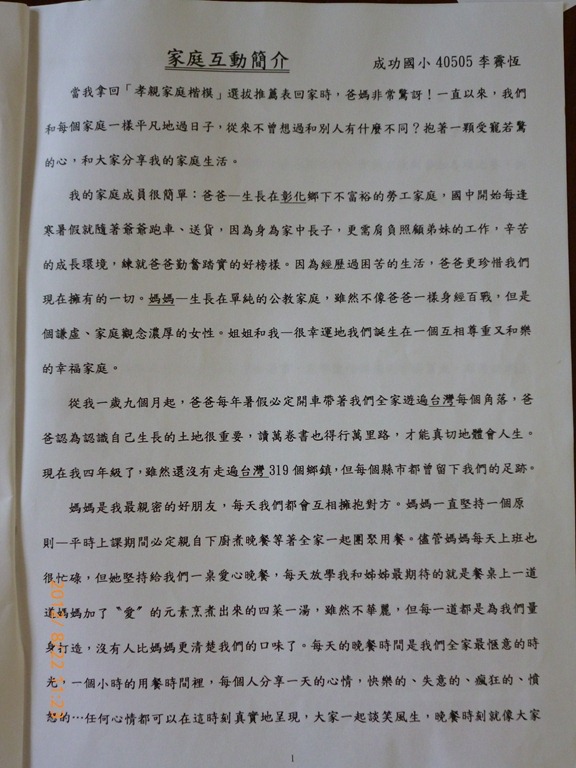 家庭互動簡介 成功國小 40505 李霽恆
當我拿回「孝親家庭楷模」選拔推薦表回家時，爸媽非常驚訝！一直以來，我們
和每個家庭一樣平凡地過日子，從來不曾想過和別人有什麼不同？抱著一顆受寵若驚
的心，和大家分享我的家庭生活。
我的家庭成員很簡單：爸爸—生長在彰化鄉下不富裕的勞工家庭，國中開始每逢
寒暑假就隨著爺爺跑車、送貨，因為身為家中長子，更需肩負照顧弟妹的工作，辛苦
的成長環境，練就爸爸勤奮踏實的好榜樣。因為經歷過困苦的生活，爸爸更珍惜我們
現在擁有的一切。媽媽—生長在單純的公教家庭，雖然不像爸爸一樣身經百戰，但是
個謙虛、家庭觀念濃厚的女性。姐姐和我—很幸運地我們誕生在一個互相尊重又和樂
的幸福家庭。
從我一歲九個月起，爸爸每年暑假必定開車帶著我們全家遊遍台灣每個角落，爸
爸認為認識自己生長的土地很重要，讀萬卷書也得行萬里路，才能真切地體會人生。
現在我四年級了，雖然還沒有走遍台灣 319 個鄉鎮，但每個縣市都曾留下我們的足跡。
媽媽是我最親密的好朋友，每天我們都會互相擁抱對方。媽媽一直堅持一個原
則—平時上課期間必定親自下廚煮晚餐等著全家一起團聚用餐。儘管媽媽每天上班也
很忙碌，但她堅持給我們一桌愛心晚餐，每天放學我和姊姊最期待的就是餐桌上一道
道媽媽加了〝愛〞的元素烹煮出來的四菜一湯，雖然不華麗，但每一道都是為我們量
身打造，沒有人比媽媽更清楚我們的口味了。每天的晚餐時間是我們全家最愜意的時
光，一個小時的用餐時間裡，每個人分享一天的心情，快樂的、失意的、瘋狂的、憤
怒的…任何心情都可以在這時刻真實地呈現，大家一起談笑風生，晚餐時刻就像大家
1